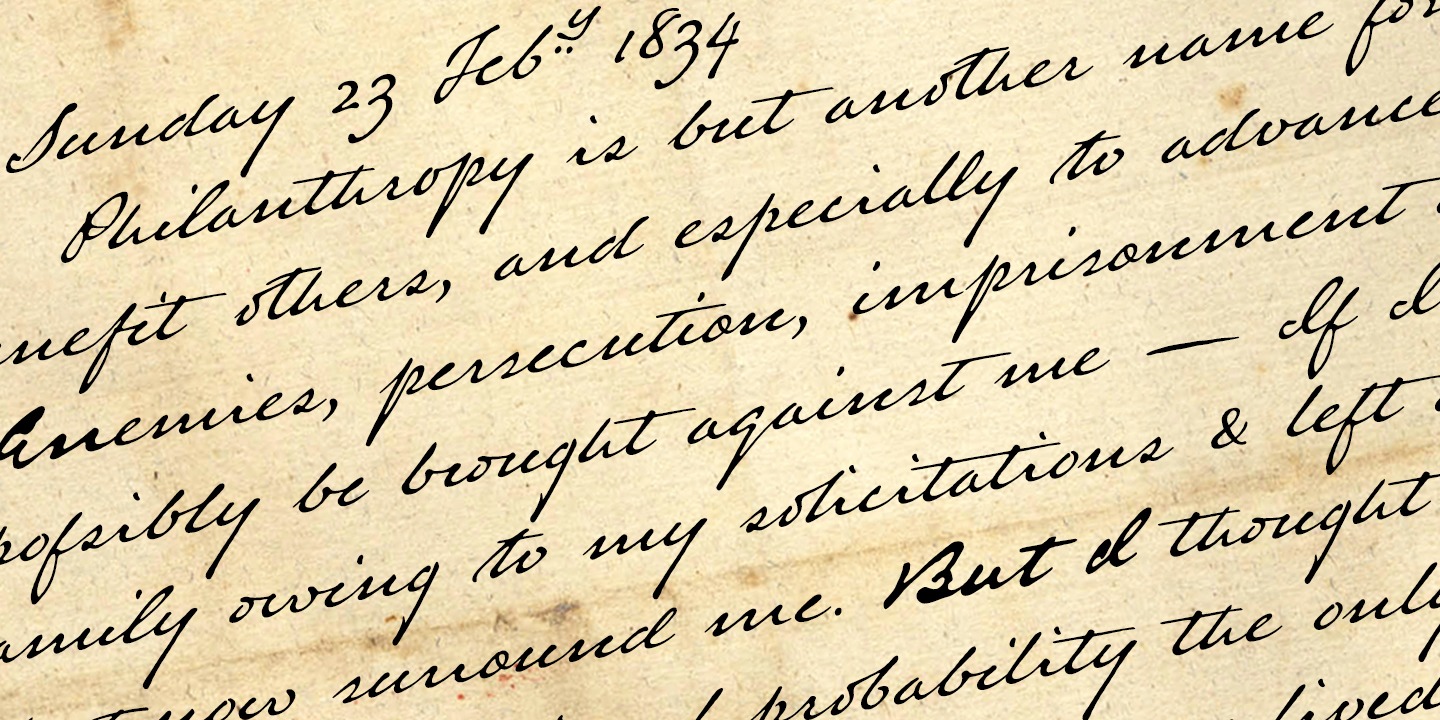 Sunday 23 Feby 1834
Philanthropy is but another name for
enefit others, and especially to advance
Enemies, persecution, imprisonment
poſsibly be brought against me — If I
amily owing to my solicitations & left
now surround me. But I thought
probability the only
lived